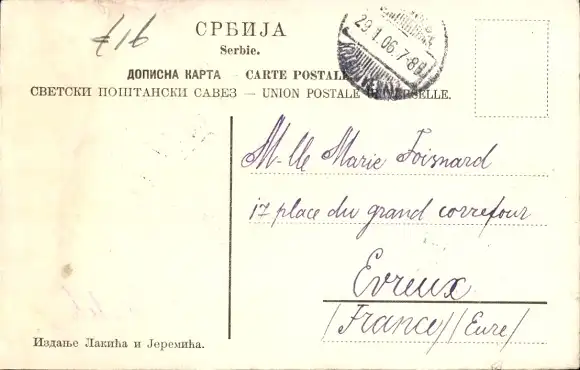 £16
СРБИЈА
Serbie.
29.1.06.7-8
ДОПИСНА КАРТА - CARTE POSTALE
СВЕТСКИ ПОШТАНСКИ САВЕЗ — UNION POSTALE UNIVERSELLE.
M-lle Marie Foisnard
17 place du grand correfour
Evreux
/France/ /Eure/
Издање Лакића и Јеремића.